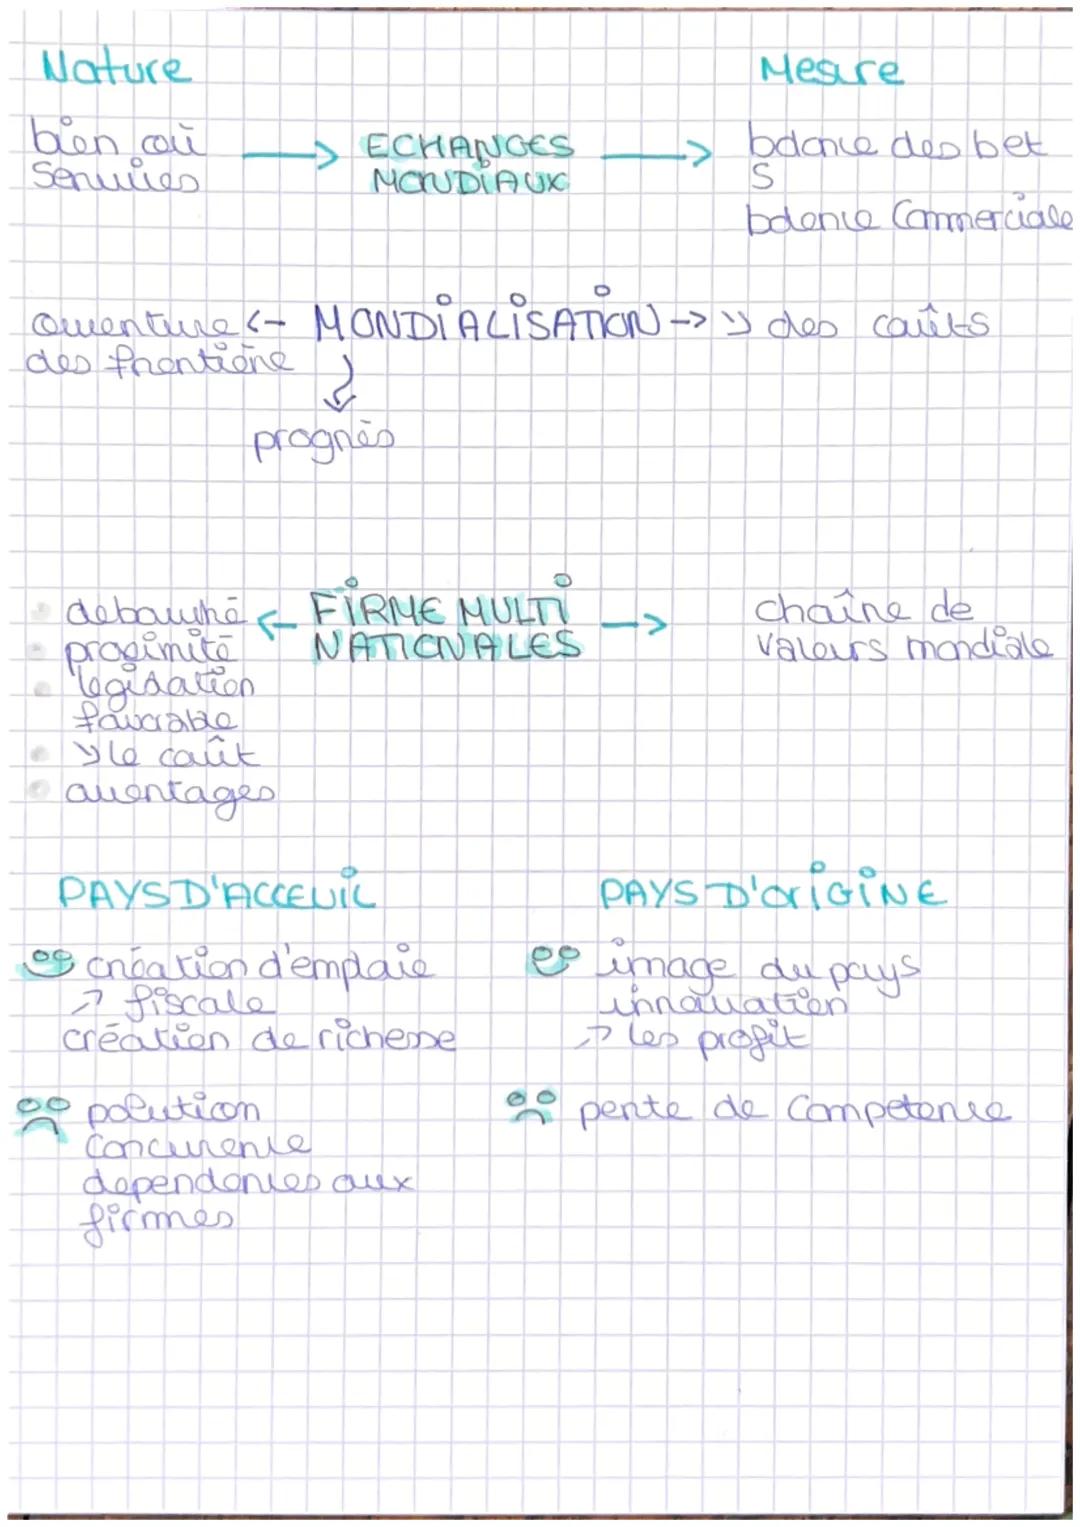 Nature
Mesure
bien ou
Services
ECHANGES
MONDiAUX
balance des b et
S
balance Commerciale
ouverture <- MONDiALiSATiON -> ↘ des coûts
des frontière
progrès
debouché
proximité
législation
favorable
↘ le coût
aventages
FiRME MULTi
NATIONALES
chaîne de
valeurs mondiale
PAYS D'ACCEUiL
création d'emploie
↗ fiscale
création de richesse
polution
Concurence
dependences aux
firmes
PAYS D'ORiGiNE
image du pays
innovation
↗ les profit
perte de Competence